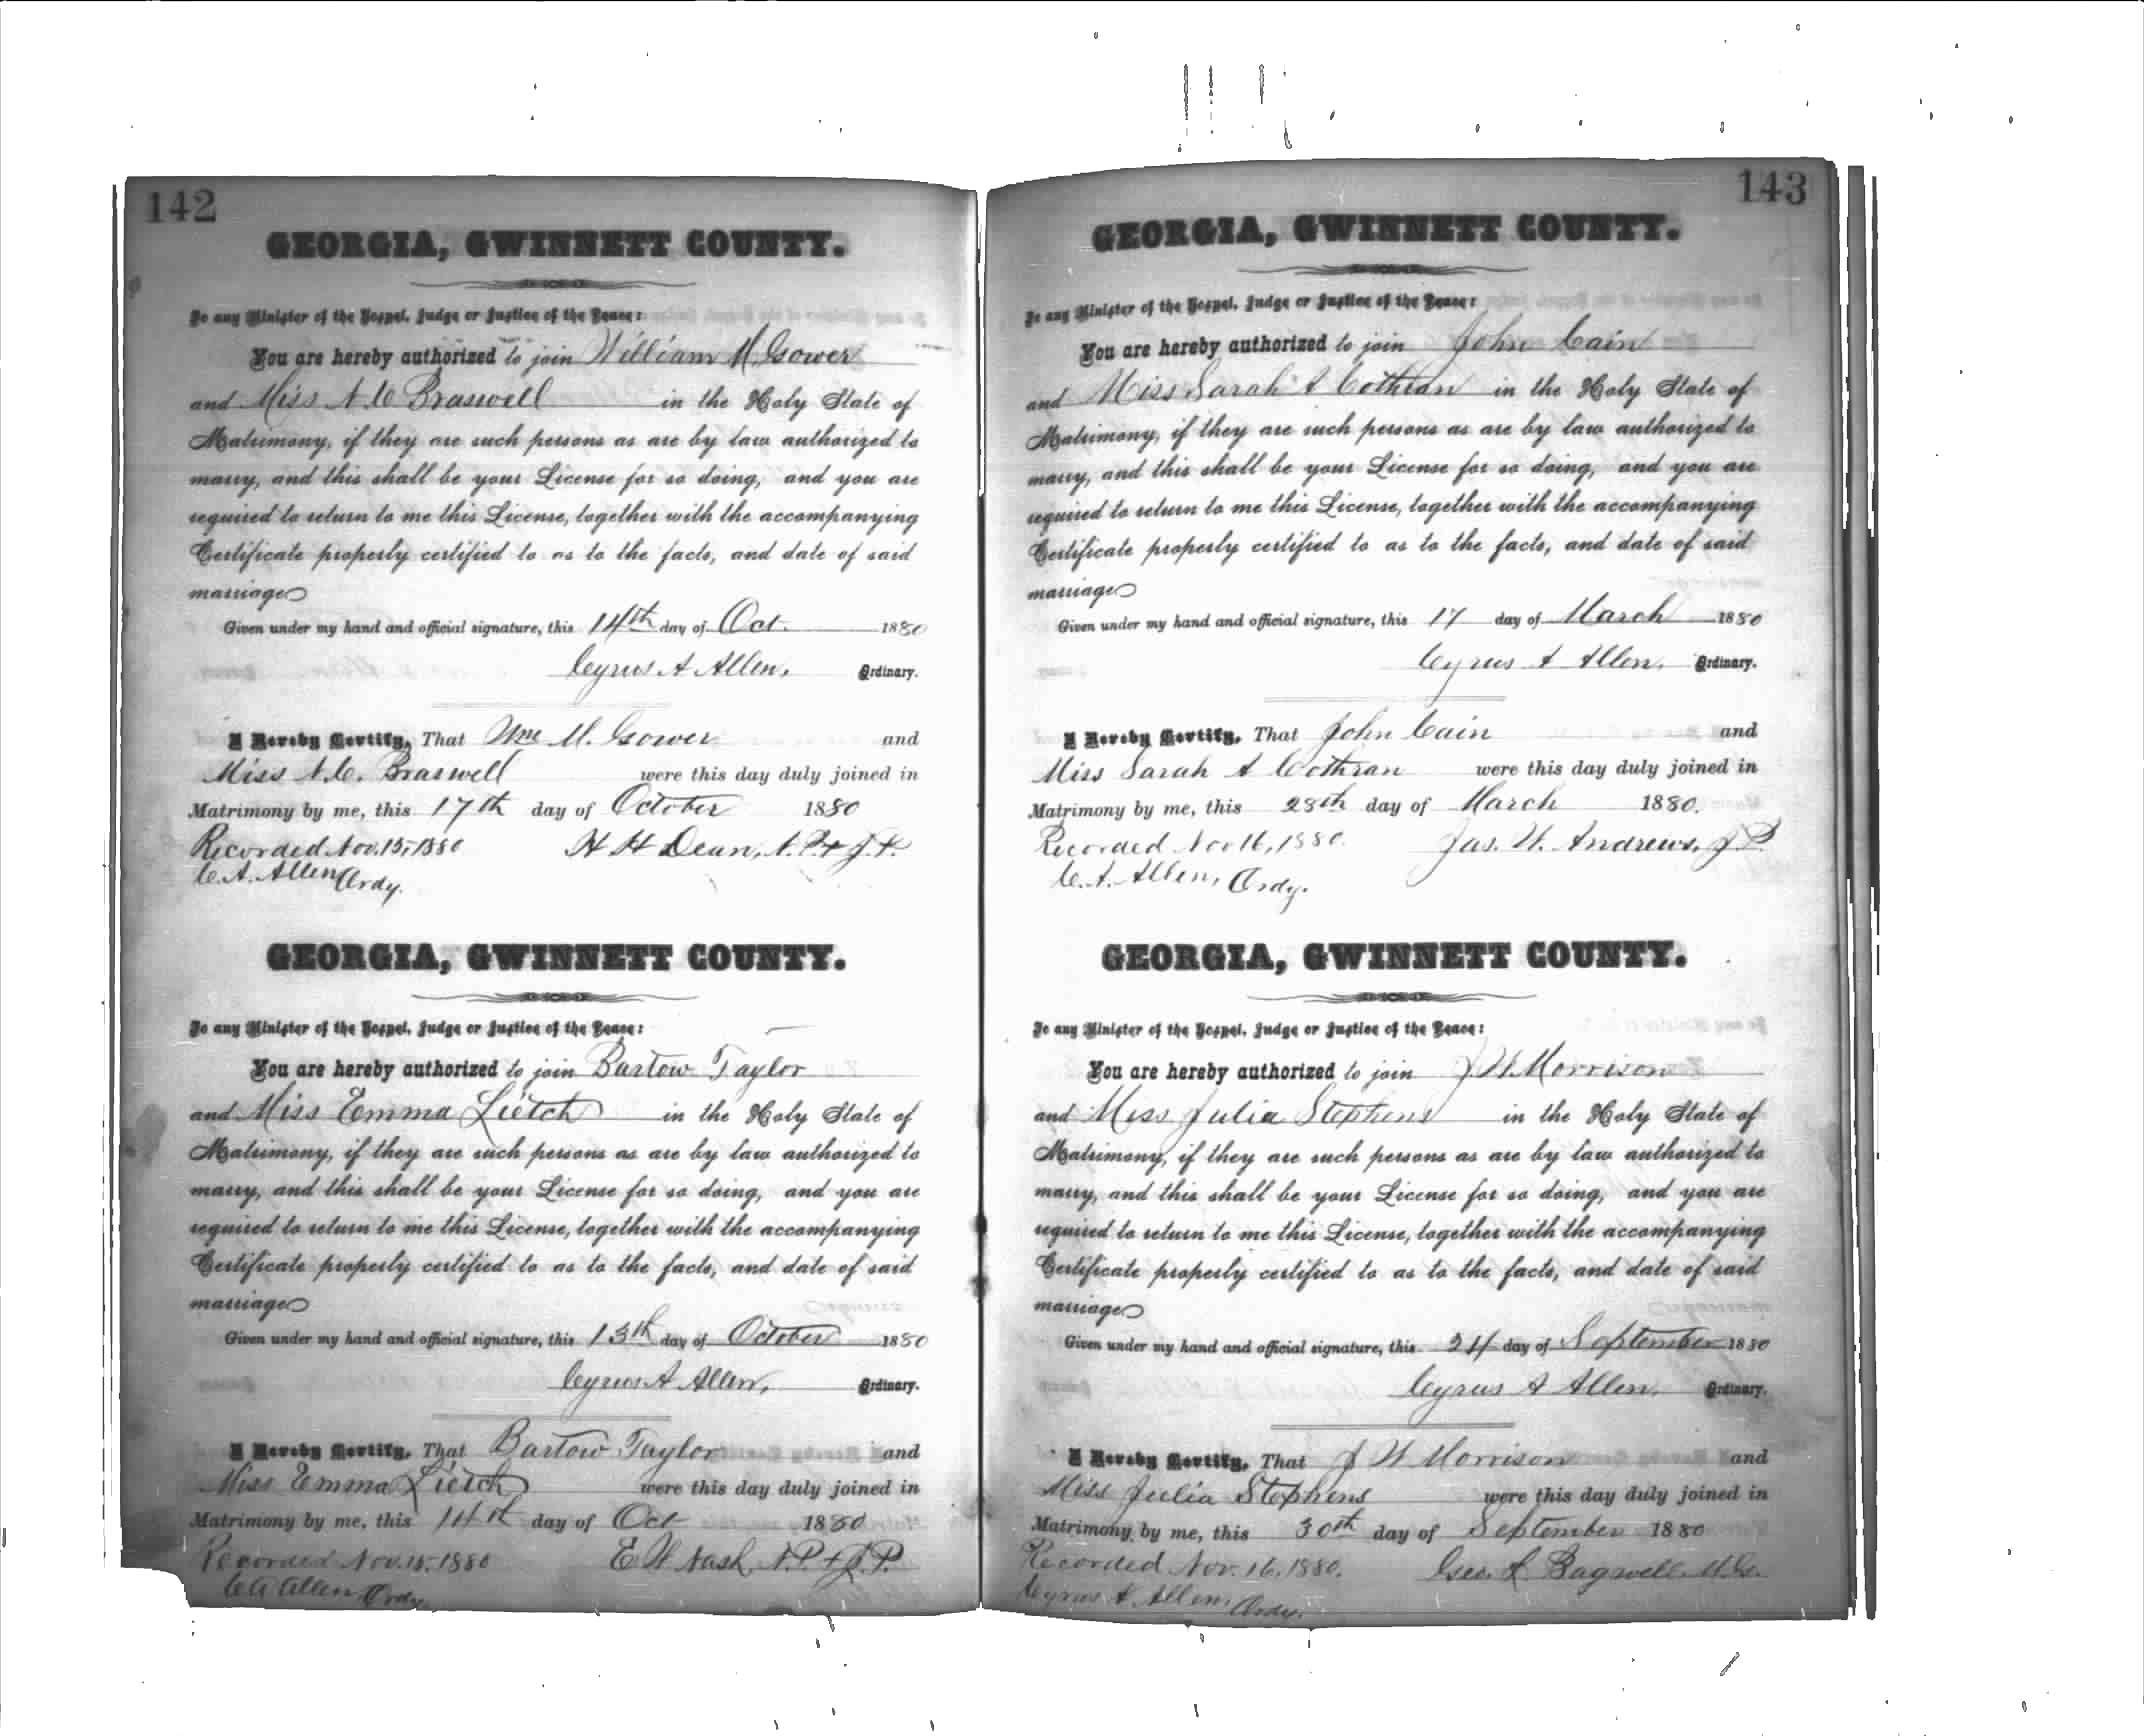 142
GEORGIA, GWINNETT COUNTY.
To any Minister of the Gospel, Judge or Justice of the Peace:
You are hereby authorized to join William M. Gower
and Miss N. C. Braswell in the Holy State of
Matrimony, if they are such persons as are by law authorized to
marry, and this shall be your License for so doing, and you are
required to return to me this License, together with the accompanying
Certificate properly certified to as to the facts, and date of said
marriage
Given under my hand and official signature, this 14th day of Oct. 1880
Cyrus A Allen, Ordinary.
I Hereby Certify, That Wm M. Gower and
Miss N. C. Braswell were this day duly joined in
Matrimony by me, this 17th day of October 1880
Recorded Nov. 15, 1880 H H Dean, N. P. & J. P.
C. A. Allen Ordy.
GEORGIA, GWINNETT COUNTY.
To any Minister of the Gospel, Judge or Justice of the Peace:
You are hereby authorized to join Bartow Taylor
and Miss Emma Lietch in the Holy State of
Matrimony, if they are such persons as are by law authorized to
marry, and this shall be your License for so doing, and you are
required to return to me this License, together with the accompanying
Certificate properly certified to as to the facts, and date of said
marriage
Given under my hand and official signature, this 13th day of October 1880
Cyrus A Allen, Ordinary.
I Hereby Certify, That Bartow Taylor and
Miss Emma Lietch were this day duly joined in
Matrimony by me, this 14th day of Oct 1880
Recorded Nov. 15, 1880 E W Nash N. P. & J. P.
C A Allen Ordy.
143
GEORGIA, GWINNETT COUNTY.
To any Minister of the Gospel, Judge or Justice of the Peace:
You are hereby authorized to join John Cain
and Miss Sarah A Cothran in the Holy State of
Matrimony, if they are such persons as are by law authorized to
marry, and this shall be your License for so doing, and you are
required to return to me this License, together with the accompanying
Certificate properly certified to as to the facts, and date of said
marriage
Given under my hand and official signature, this 17 day of March 1880
Cyrus A Allen, Ordinary.
I Hereby Certify, That John Cain and
Miss Sarah A Cothran were this day duly joined in
Matrimony by me, this 28th day of March 1880.
Recorded Nov 16, 1880. Jas. W. Andrews, J P.
C. A. Allen, Ordy.
GEORGIA, GWINNETT COUNTY.
To any Minister of the Gospel, Judge or Justice of the Peace:
You are hereby authorized to join J. W. Morrison
and Miss Julia Stephens in the Holy State of
Matrimony, if they are such persons as are by law authorized to
marry, and this shall be your License for so doing, and you are
required to return to me this License, together with the accompanying
Certificate properly certified to as to the facts, and date of said
marriage
Given under my hand and official signature, this 24 day of September 1880
Cyrus A Allen, Ordinary.
I Hereby Certify, That J W Morrison and
Miss Julia Stephens were this day duly joined in
Matrimony by me, this 30th day of September 1880
Recorded Nov. 16, 1880. Geo. L Bagwell M. G.
Cyrus A. Allen, Ordy.